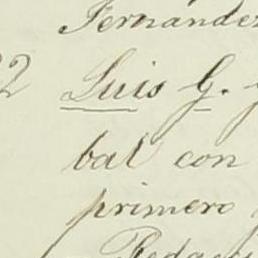 Fernandez
22 Luis G.
bal con
primero